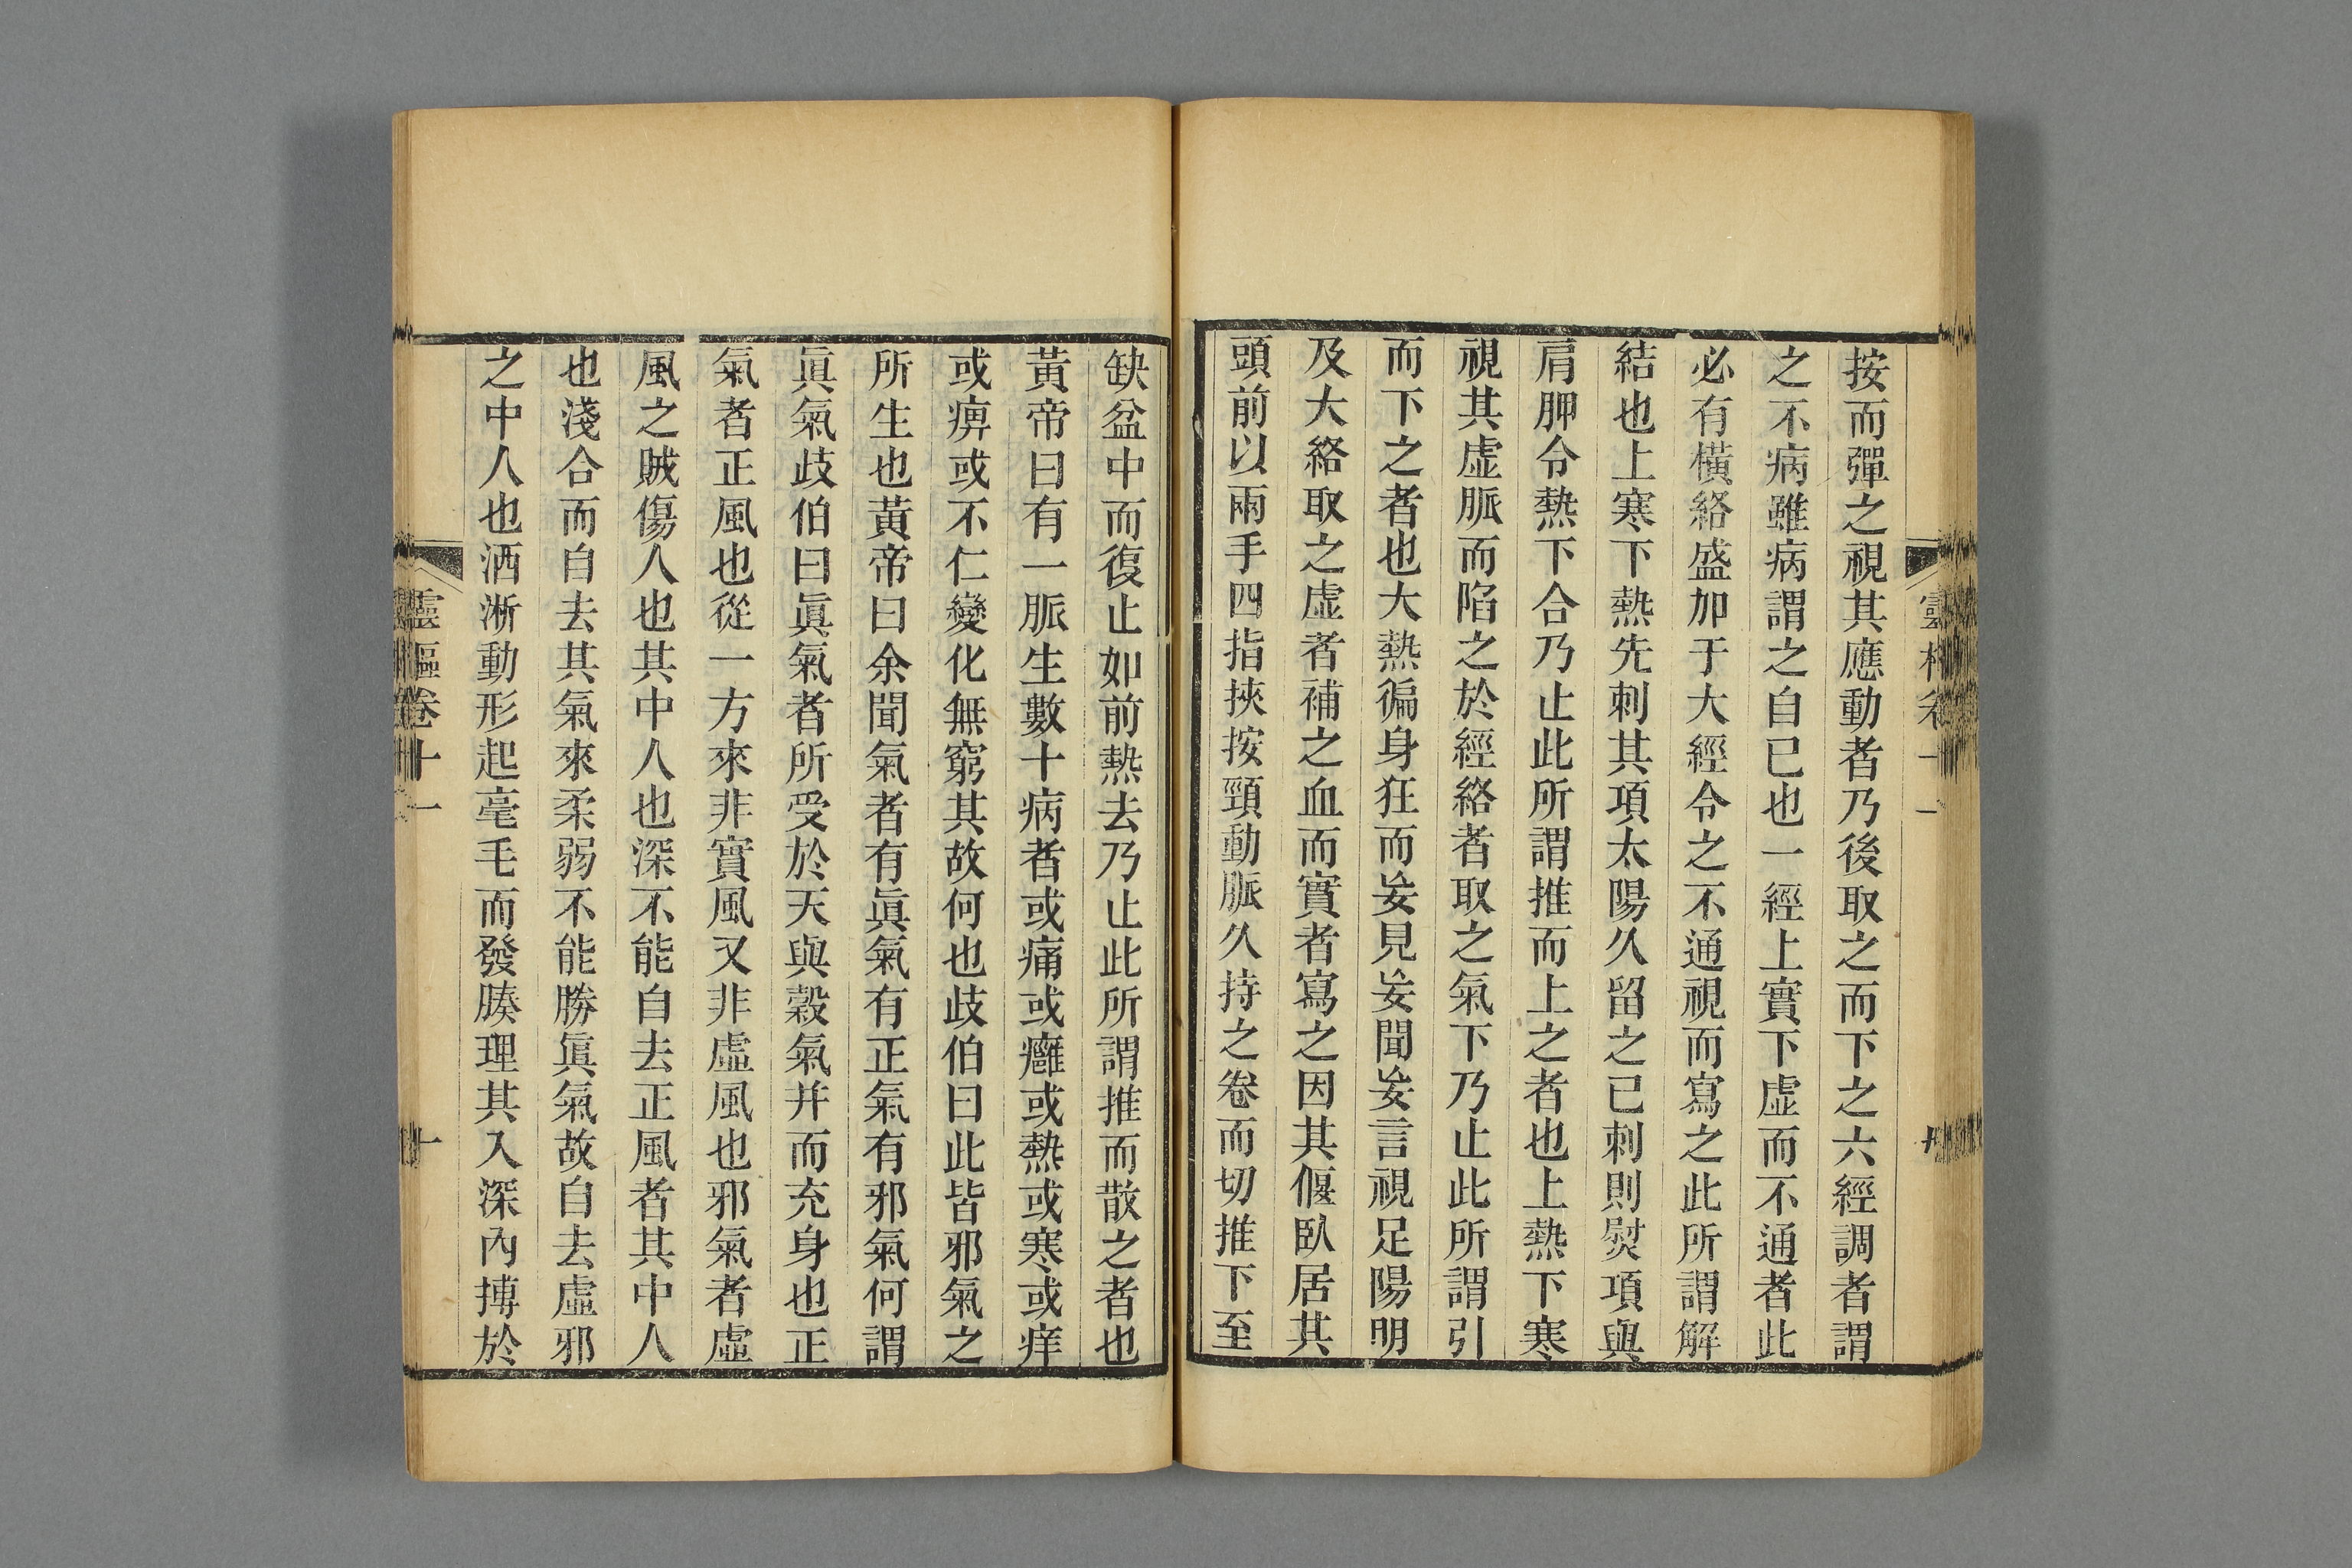 按而彈之視其應動者乃後取之而下之六經調者謂
之不病雖病謂之自已也一經上實下虛而不通者此
必有橫絡盛加于大經令之不通視而寫之此所謂解
結也上寒下熱先刺其項太陽久留之已刺則熨項與
肩胛令熱下合乃止此所謂推而上之者也上熱下寒
視其虛脈而陷之於經絡者取之氣下乃止此所謂引
而下之者也大熱徧身狂而妄見妄聞妄言視足陽明
及大絡取之虛者補之血而實者寫之因其偃臥居其
頭前以兩手四指挾按頸動脈久持之卷而切推下至
缺盆中而復止如前熱去乃止此所謂推而散之者也
黃帝曰有一脈生數十病者或痛或癰或熱或寒或痒
或痹或不仁變化無窮其故何也歧伯曰此皆邪氣之
所生也黃帝曰余聞氣者有眞氣有正氣有邪氣何謂
眞氣歧伯曰眞氣者所受於天與穀氣并而充身也正
氣者正風也從一方來非實風又非虛風也邪氣者虛
風之賊傷人也其中人也深不能自去正風者其中人
也淺合而自去其氣來柔弱不能勝眞氣故自去虛邪
之中人也洒淅動形起毫毛而發腠理其入深內搏於
靈樞卷十一
十